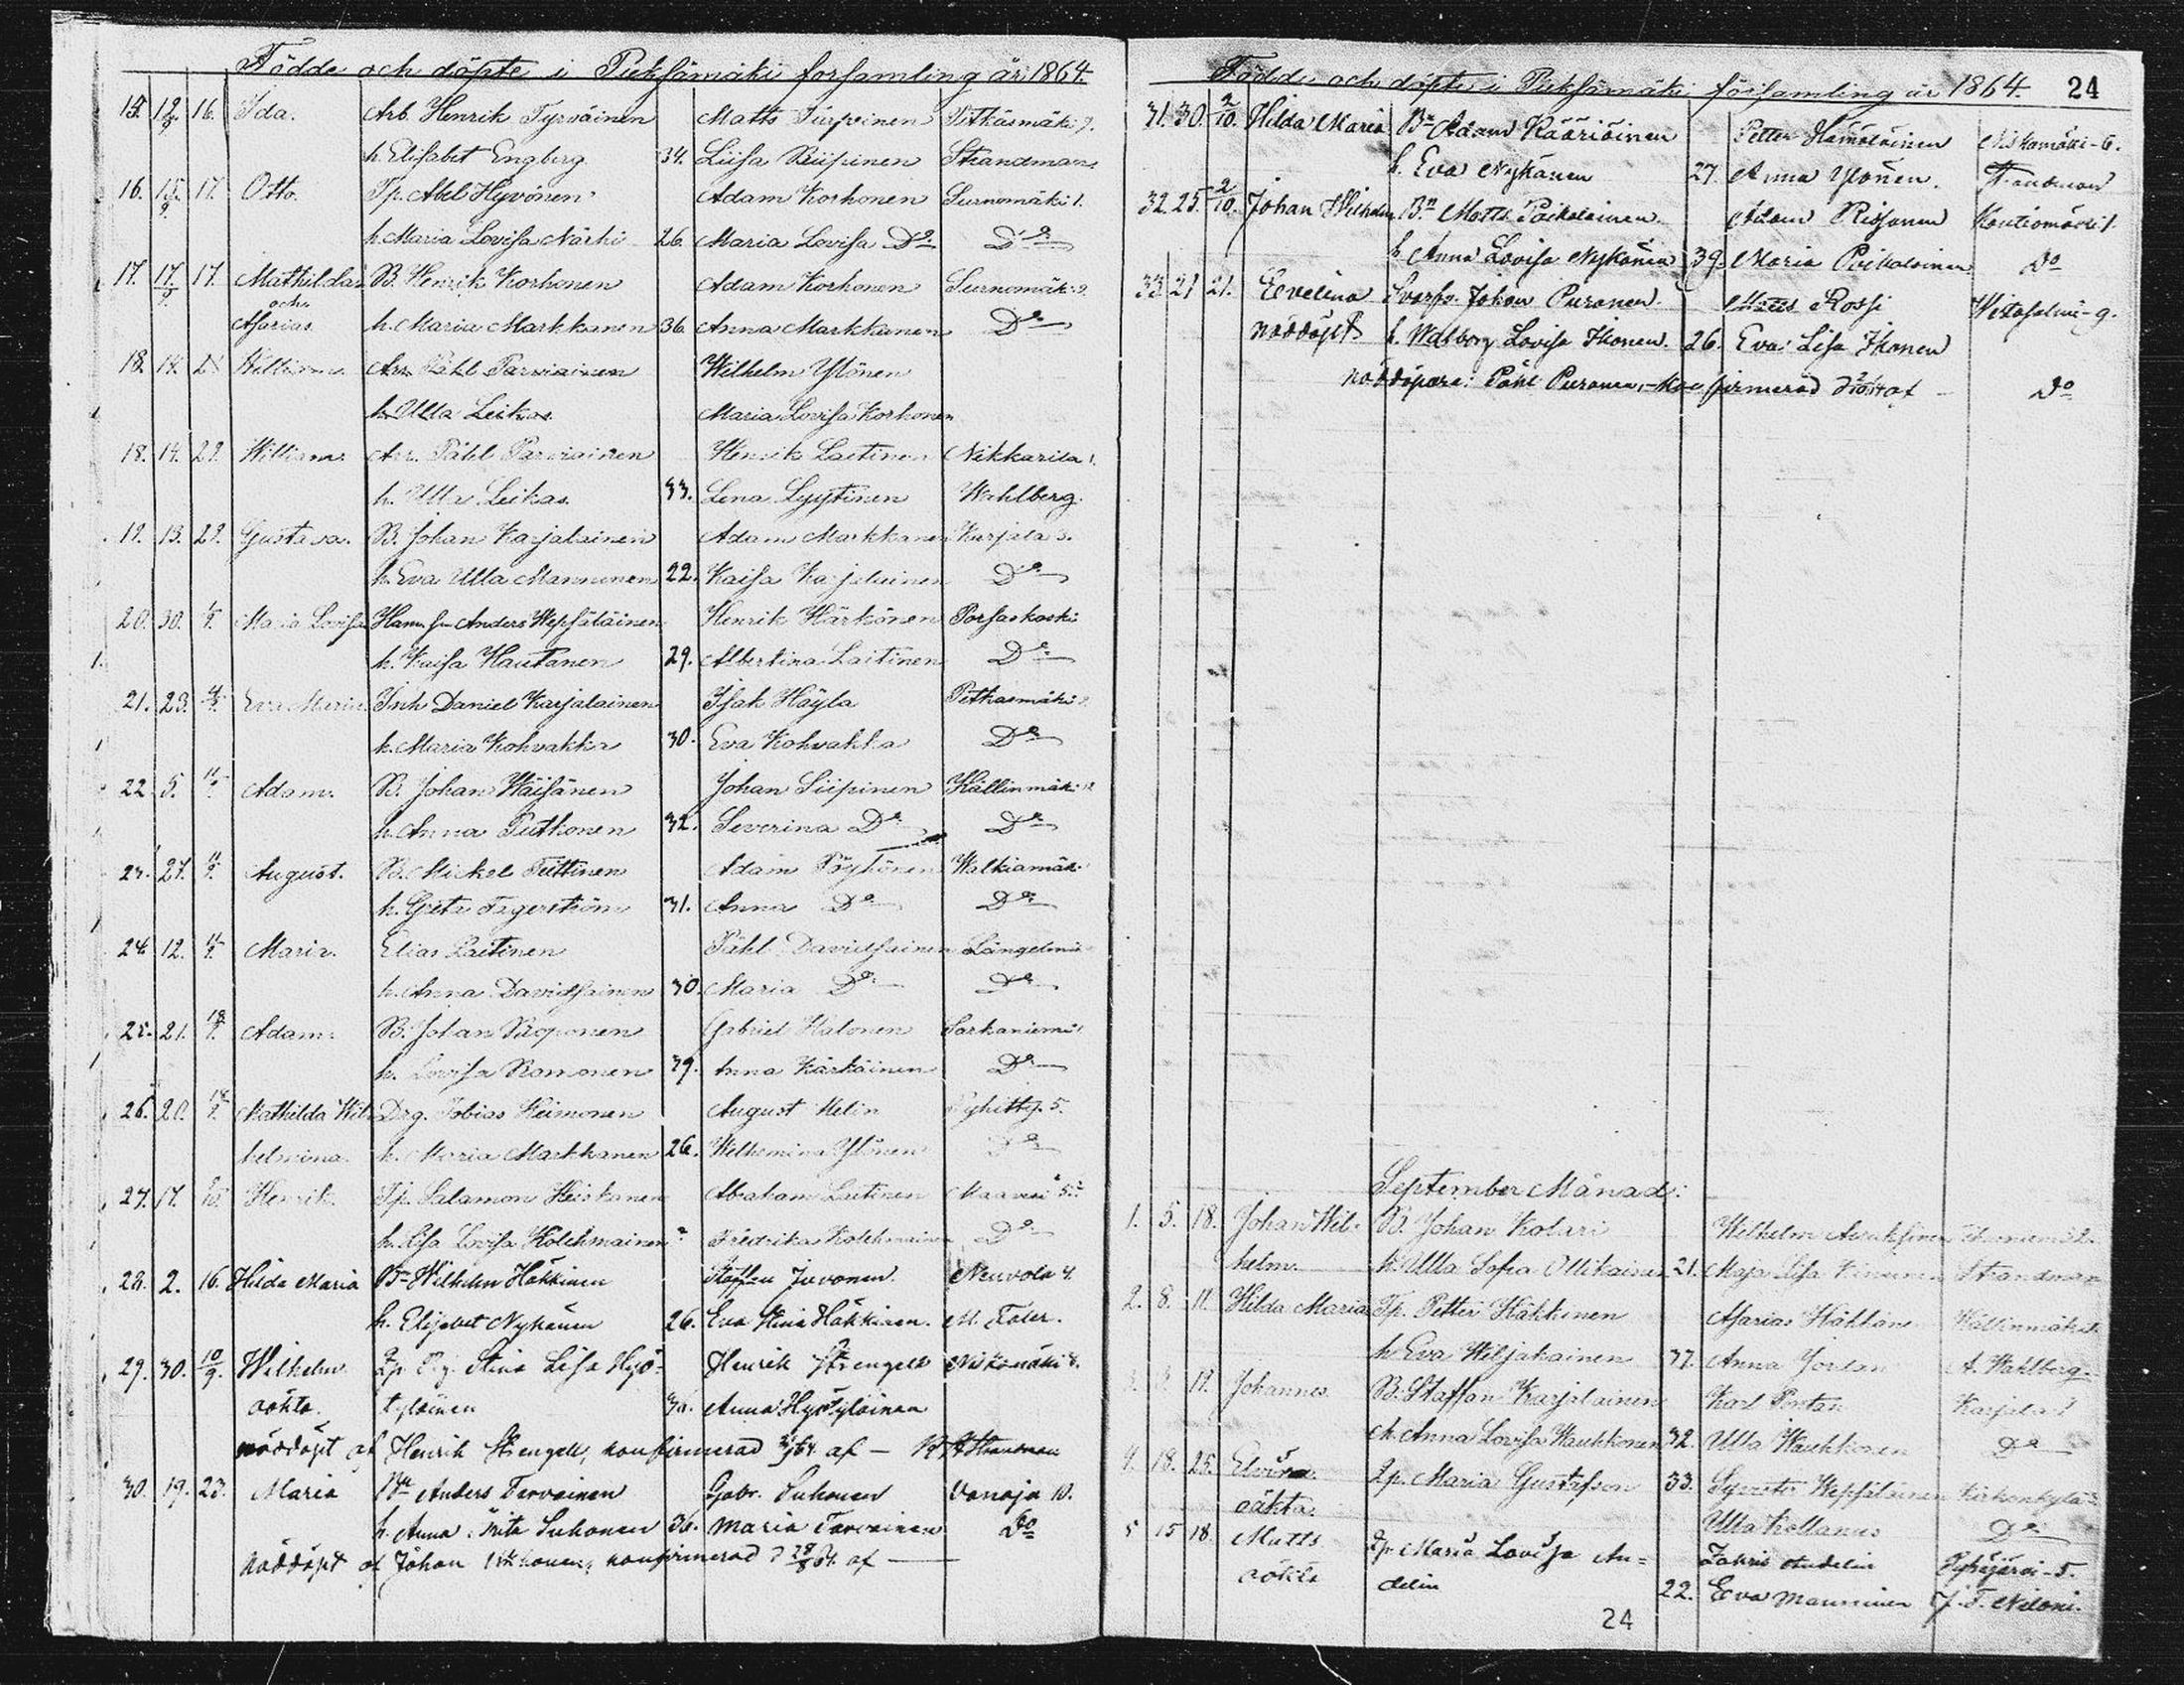 Födde och döpte i Pieksämäki församling år 1864.
15. 12/9 16. Ida. Arb. Henrik Tyrväinen Matts Turpeinen Pitkäsmäki 7.
h. Elisabet Engberg 34. Liisa Siipinen Strandman.
16. 15/9. 17. Otto. Tp. Abel Hyvönen Adam Korhonen Surnomäki 1.
h. Maria Lovisa Närhi 26. Maria Lovisa Do Do
17. 17/9. 17. Mathilda B. Henrik Korhonen Adam Korhonen Surnomäki
och
Asarias. h. Maria Markkanen 36. Anna Markkanen Do
18. 14. Arr. Påhl Parviainen Wilhelm Ylönen
h. Ulla Leikas Maria Lovisa Korhonen
18. 14. 29. William. Arr. Påhl Parviainen Henrik Laitinen Nikkarila 1.
h. Ulla Leikas. 33. Lena Lyytinen Wahlberg.
19. 13. 29. Gustava. B. Johan Karjalainen Adam Markkanen Karjala 3.
h. Eva Ulla Manninen 22. Kaisa Karjalainen Do
20. 30. Maria Lovisa Anders Wepsäläinen Henrik Härkönen Porsaskoski
h. Kaisa Hautanen 29. Albertina Laitinen Do
21. 23. Eva Maria Inh Daniel Karjalainen Isak Häyla Petkasmäki
h. Maria Kohvakka 30. Eva Kohvakka Do
22. 5. Adam. B. Johan Wäisänen Johan Siipinen Hällinmäki
h. Anna Putkonen 32. Severina Do Do
23. 27. August. B. Mickel Tiittinen Adam Pöyhönen Walkiamäki
h. Greta Fagerström 31. Anna Do Do
24. 12. Maria. Elias Laitinen Påhl Davidsainen Längelmä
h. Anna Davidsainen 30. Maria Do Do
25. 21. 18/9. Adam. B. Johan Gabriel Halonen Sarkaniemi
h. Lovisa Romonen 39. Anna Kärkäinen Do
26. 20. 18/9. Mathilda Wil- Drg. Tobias Heimonen August Melin Pyhitty. 5.
helmina. h. Maria Markkanen 26. Wilhemina Ylönen Do
27. 17. Henrik. Tp. Salamon Heiskanen Abraham Laitinen Maavesi 5.
h. Lisa Lovisa Kolehmainen ? Fredrika Kolehmainen Do
28. 2. 16. Hilda Maria Bn Wilhelm Häkkinen Staffan Juvonen. Neuvola 4.
h. Elisabet Nykänen 26. Eva Stina Häkkinen. M. Toler.
29. 30. 10/9. Wilhelm Qp. Pig. Stina Lisa Hyö- Henrik Strengell Niskamäki 8.
oäkta. tyläinen 30. Anna Hyötyläinen
nöddöpt af Henrik Strengell, konfirmerad af — Strandman
30. 19. 23. Maria Bn Anders Tarvainen Gabr. Suhonen Vanaja 10.
h. Anna Brita Suhonen 36. Maria Tarvainen Do
nöddöpt af Johan konfirmerad d 28/8 64. af —
Födde och döpte i Pieksämäki församling år 1864. 24
31. 30. 2/10. Hilda Maria Bn Adam Kääriäinen Petter Hämäläinen Niskamäki-6.
h. Eva Nykänen 27. Anna Ylönen. Strandman
32. 25. 2/10. Johan Wilhelm Bn Matts Paikalainen Adam Rissanen Kontiomäki 1.
h. Anna Lovisa Nykänen 39. Maria Poikolainen Do
33 21 21. Evelina Svarfv. Johan Puranen. Matts Rossi Witosalmi-9.
nöddöpt. h. Walborg Lovisa Ikonen. 26. Eva Lisa Ikonen
nöddöpare: Påhl Puranen, — konfirmerad af — Do
September Månad:
1. 5. 18. Johan Wil- B. Johan Kolari Wilhelm
helm. h. Ulla Sofia Ollikainen 21. Maja Lisa Strandman
2. 8. 11. Hilda Maria Tp. Petter Häkkinen Asarias Häkkänen Hällinmäki
h. Eva Wiljakainen 37. Anna A. Wahlberg.
19. Johannes. B. Staffan Karjalainen Karl Karjala
h. Anna Lovisa Waukkonen 32. Ulla Waukkonen Do
4. 18. 25. Elvira. Qp. Maria Gustafson 33. Sylvester Wepsäläinen Kirkonkylä
oäkta. Ulla Kollanus Do
5 15 18. Matts Qp Maria Lovisa An- Zakris Andelin Pyhäjärvi-5.
oäkta delin 22. Eva Manninen J. F. Niloni.
24